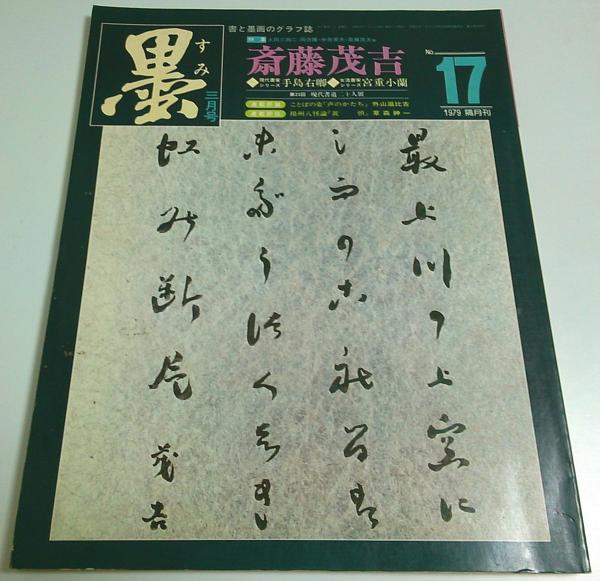 書と墨画のグラフ誌
墨
すみ
三月号
特集
斎藤茂吉
現代書家シリーズ 手島右卿
女流書家シリーズ 宮重小蘭
第23回 現代書道二十人展
連載評論 ことばの姿「声のかたち」 外山滋比古
揚州八怪論 草森紳一
No.
17
1979 隔月刊
最上川の上空に
し而のこ礼留者
未多うつくしき
虹の断片 茂吉